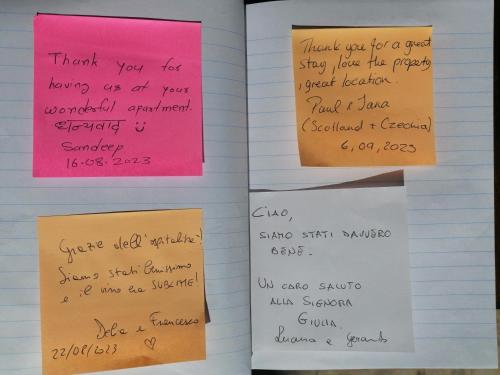 Thank you for
having us at your
wonderful apartment.
धन्यवाद
Sandeep
16.08.2023
Grazie dell'ospitalità!
Siamo stati benissimo
e il vino era SUBLIME!
Delia e Francesco
22/08/2023
Thank you for a great
stay, love the property,
great location.
Paul & Jana
(Scotland + Czechia)
6,09,2023
CIAO,
SIAMO STATI DAVVERO
BENE.
UN CARO SALUTO
ALLA SIGNORA
GIULIA.
Luana e